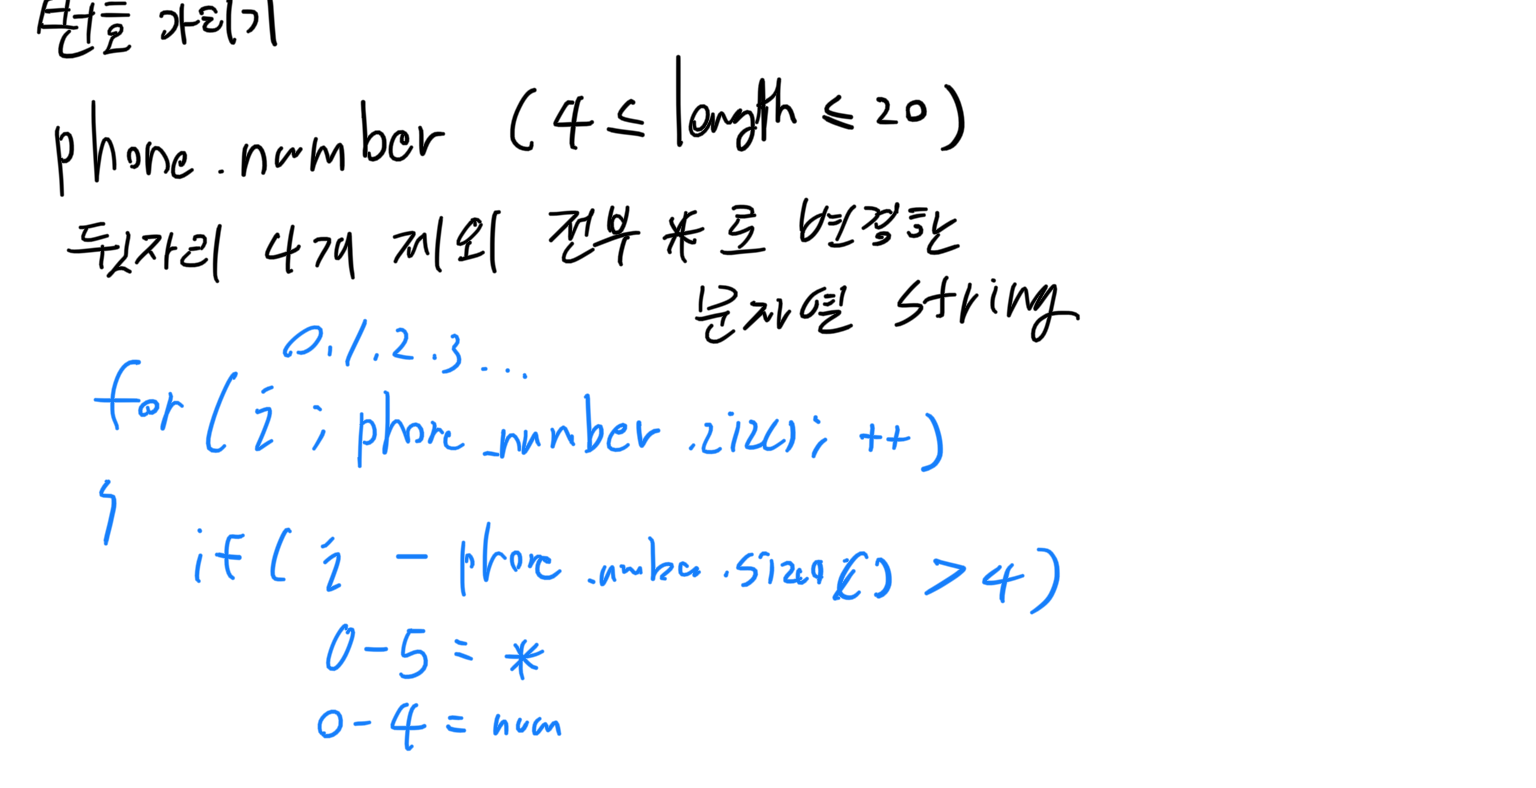 번호 가리기
phone.number (4 ≤ length ≤ 20)
뒷자리 4개 제외 전부 * 로 변경한
문자열 string
0.1.2.3...
for ( i ; phone_number.size(); ++)
{
if ( i - phone.number.size() > 4)
0-5 = *
0-4 = num